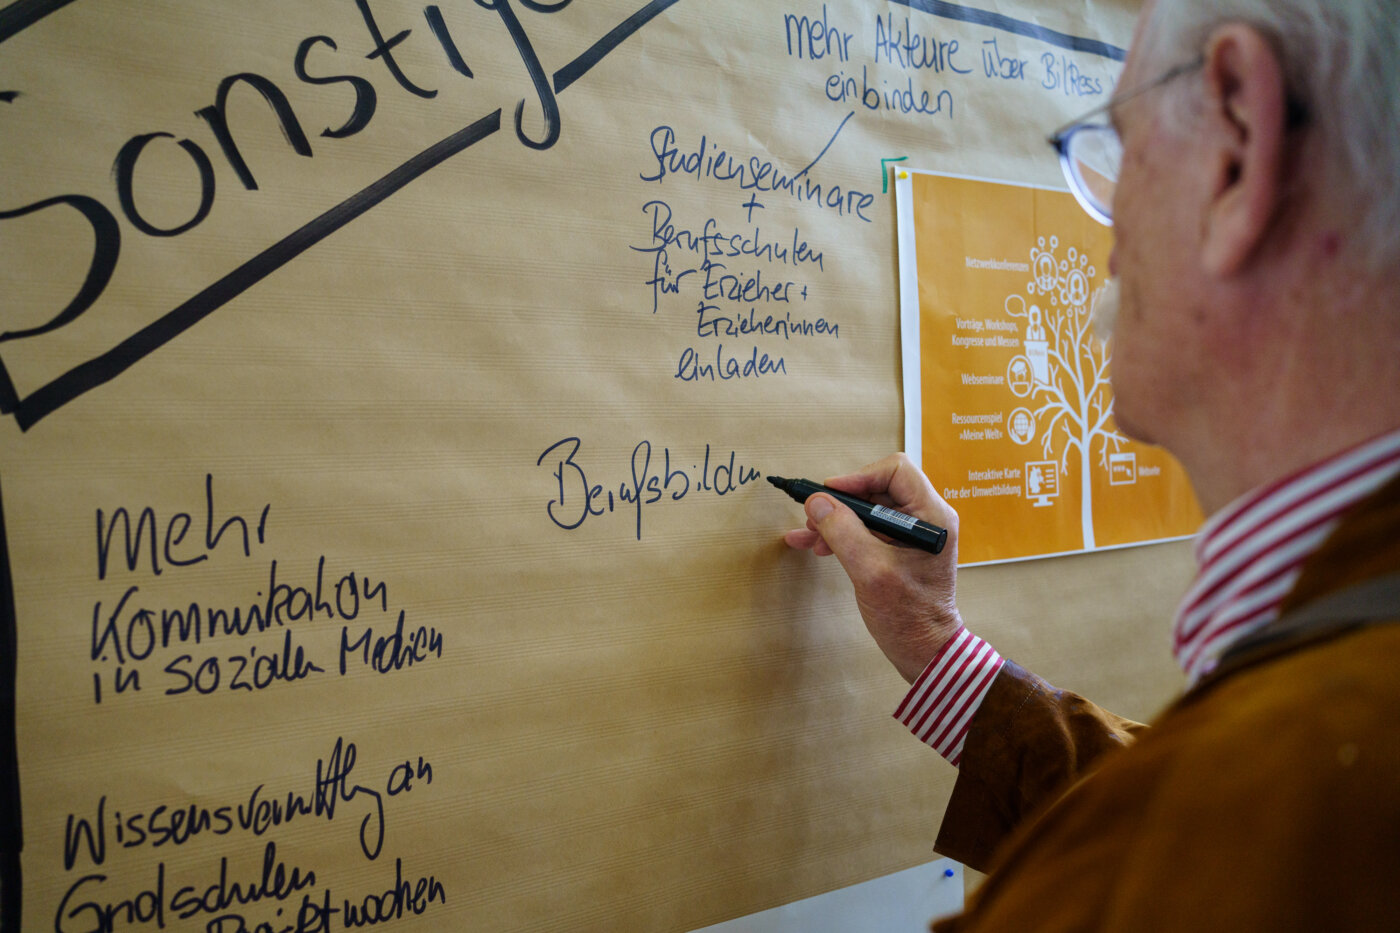 Sonstige
mehr Akteure über BilRess
einbinden
Studienseminare
+
Berufsschulen
für Erzieher +
Erzieherinnen
einladen
Berufsbildun
mehr
Kommunikation
in sozialen Medien
Wissensvermittlung an
Grundschulen
Projektwochen
Netzwerkkonferenzen
Vorträge, Workshops,
Kongresse und Messen
Webseminare
Ressourcenspiel
»Meine Welt«
Interaktive Karte
Orte der Umweltbildung
Webseite